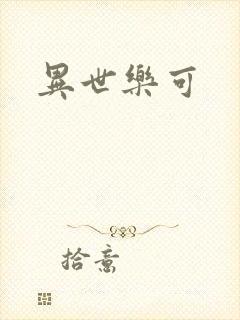 異世樂可
拾意